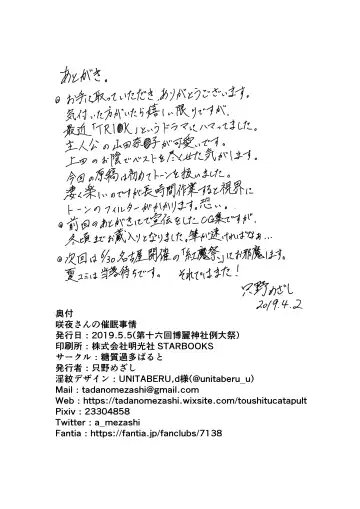 あとがき。
◎お手に取っていただき、ありがとうございます。
気付いた方がいたら嬉しい限りですが、
最近「TRI●K」というドラマにハマってました。
主人公の山田奈●子が可愛いです。
上田のお陰でベストをたくせた気がします。
今回の原稿は初めてトーンを扱いました。
凄く楽しいのですが長時間作業すると視界に
トーンのフィルターがかかります。恐い。
◎前回のあとがきにて宣伝をしたCG集ですが、
冬頃までお蔵入りとなりました。筆が速ければなぁ…
◎次回は6/30名古屋開催の「紅魔祭」にお邪魔します。
夏コミは当落待ちです。それではまた!
只野めざし
2019.4.2
奥付
咲夜さんの催眠事情
発行日:2019.5.5(第十六回博麗神社例大祭)
印刷所:株式会社明光社 STARBOOKS
サークル:糖質過多ぱると
発行者:只野めざし
淫紋デザイン:UNITABERU,d様(@unitaberu_u)
Mail:tadanomezashi@gmail.com
Web:https://tadanomezashi.wixsite.com/toushitucatapult
Pixiv:23304858
Twitter:a_mezashi
Fantia:https://fantia.jp/fanclubs/7138